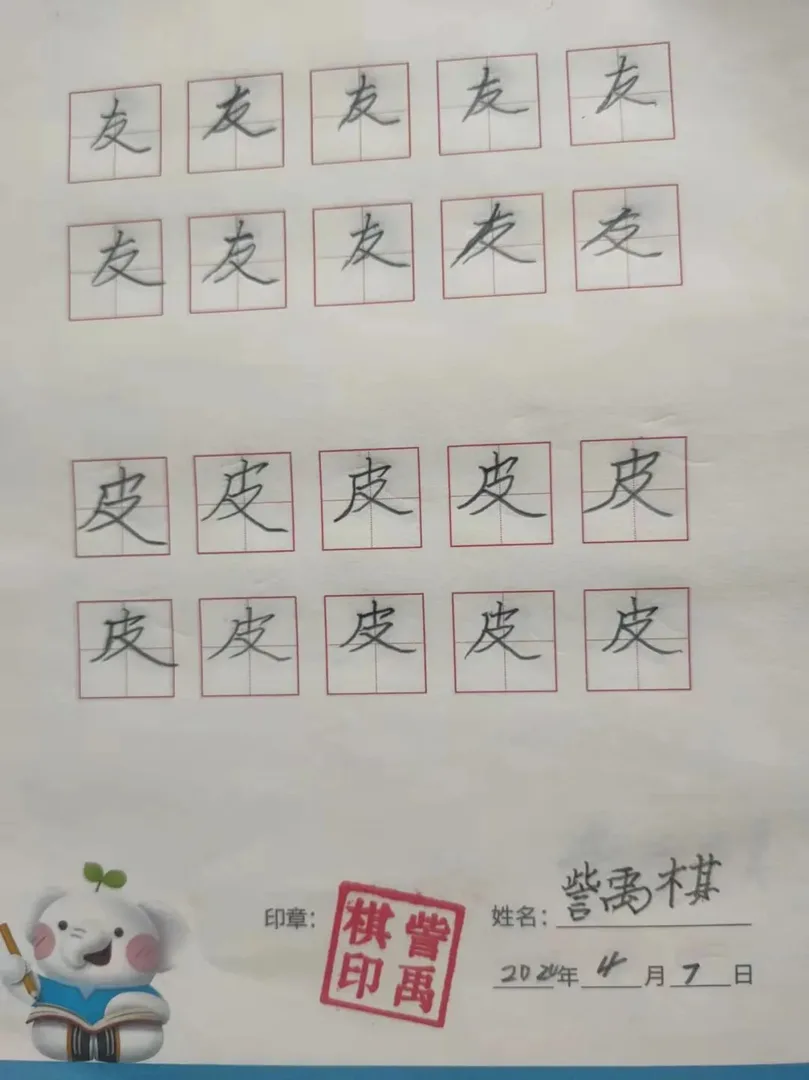 友 友 友 友 友
友 友 友 友 友
皮 皮 皮 皮 皮
皮 皮 皮 皮 皮
印章: 訾禹棋印 姓名: 訾禹棋
2024年 4 月 7 日